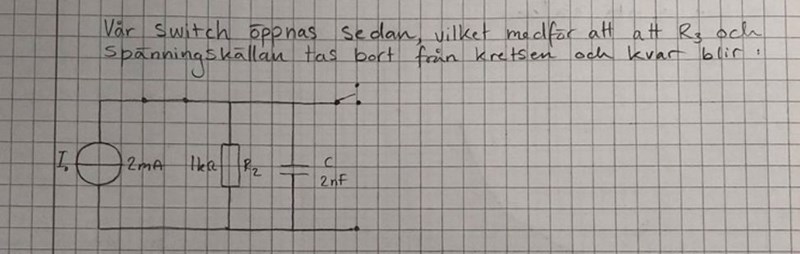 Vår switch öppnas sedan, vilket medför att att R3 och
spänningskällan tas bort från kretsen och kvar blir :
I1 2mA 1kΩ R2 C
2nF